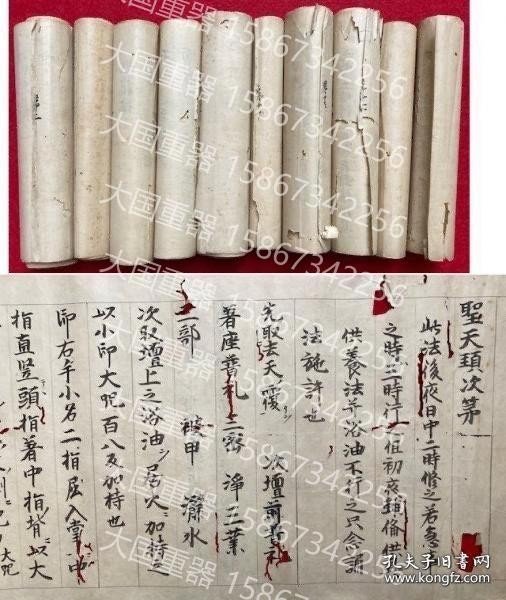 聖天頚次第
此法後夜日中二時修之若急
之時三時行之但初夜
供養法并浴油不行之只念誦
法施許也
先取去天覆 次壇前普礼
著座普礼 三密 浄三業
三部 被甲 灑水
次取壇上之浴油ヲ居火加持之
以小印大咒百八反加持也
印右手小名二指屈入掌中
指直竪頭指著中指背以大
大咒
大国重器 15867342256
孔夫子旧书网
www.kongfz.com